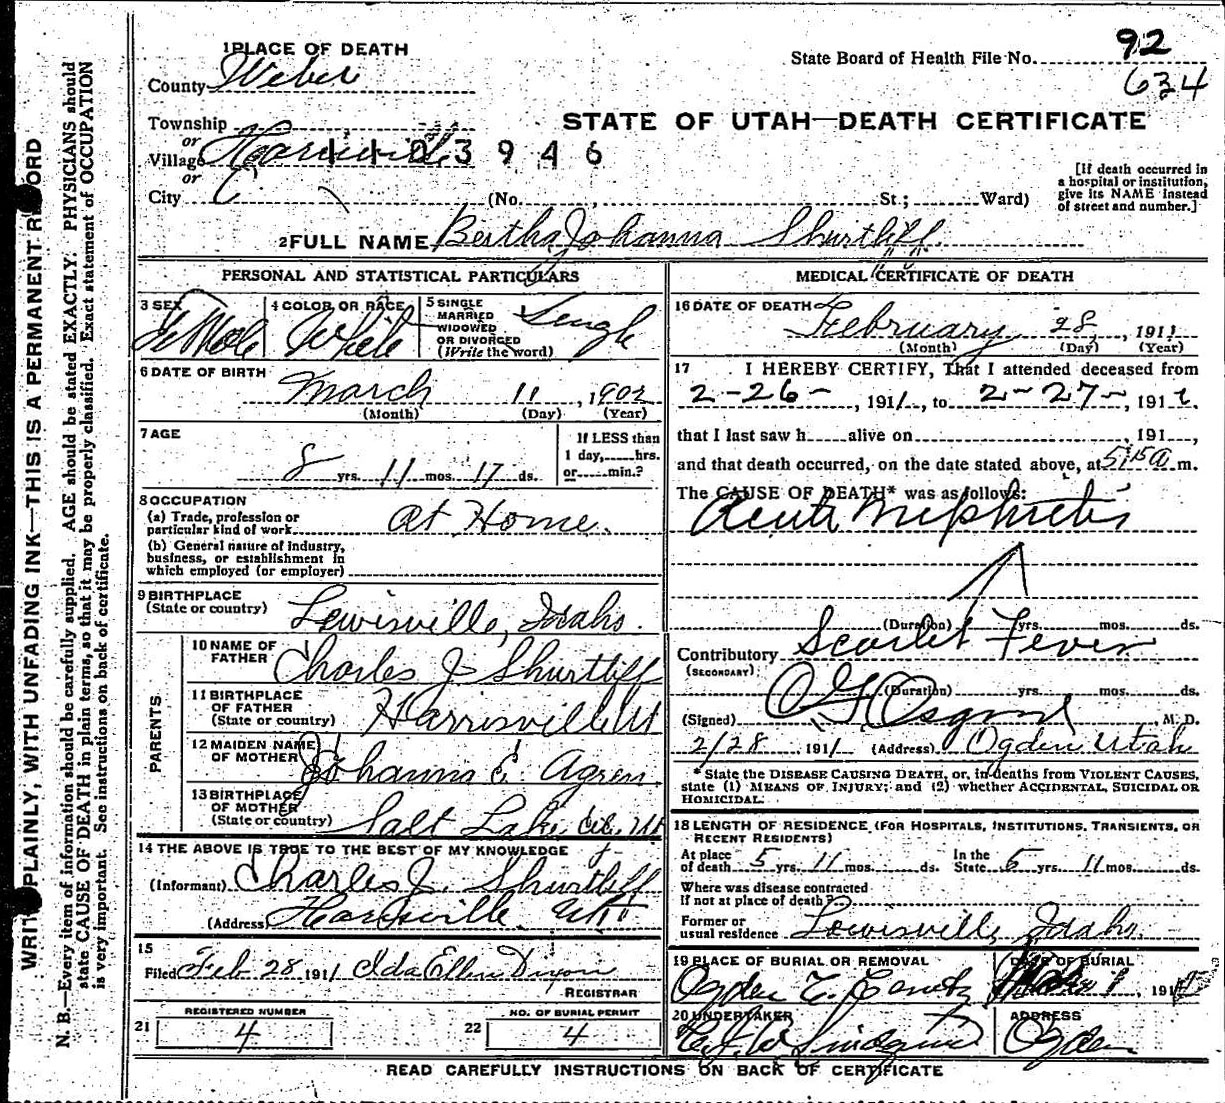 1 PLACE OF DEATH
County Weber
State Board of Health File No. 92
634
Township
or
Village Harrisville
1103946
or
City
STATE OF UTAH—DEATH CERTIFICATE
(No. St.; Ward)
[If death occurred in
a hospital or institution,
give its NAME instead
of street and number.]
2 FULL NAME Bertha Johanna Shurtliff
PERSONAL AND STATISTICAL PARTICULARS
3 SEX Female
4 COLOR OR RACE White
5 SINGLE
MARRIED
WIDOWED
OR DIVORCED
(Write the word)
Single
6 DATE OF BIRTH
March 11, 1902
(Month) (Day) (Year)
7 AGE
8 yrs. 11 mos. 17 ds.
If LESS than
1 day, hrs.
or min.?
8 OCCUPATION
(a) Trade, profession or
particular kind of work At Home.
(b) General nature of industry,
business, or establishment in
which employed (or employer)
9 BIRTHPLACE
(State or country) Lewisville, Idaho.
PARENTS
10 NAME OF
FATHER Charles J Shurtliff
11 BIRTHPLACE
OF FATHER
(State or country) Harrisville Ut
12 MAIDEN NAME
OF MOTHER Johanna E. Agren
13 BIRTHPLACE
OF MOTHER
(State or country) Salt Lake City, Ut
14 THE ABOVE IS TRUE TO THE BEST OF MY KNOWLEDGE
(Informant) Charles J. Shurtliff
(Address) Harrisville Utt
15
Filed Feb 28 1911 Ida Ellen Dixon
REGISTRAR
21 REGISTERED NUMBER
4
22 NO. OF BURIAL PERMIT
4
MEDICAL CERTIFICATE OF DEATH
16 DATE OF DEATH
February 28, 1911
(Month) (Day) (Year)
17 I HEREBY CERTIFY, That I attended deceased from
2-26-, 1911, to 2-27-, 1911,
that I last saw h alive on , 191 ,
and that death occurred, on the date stated above, at 5:15 a m.
The CAUSE OF DEATH* was as follows:
Acute Nephritis
(Duration) yrs. mos. ds.
Contributory Scarlet Fever
(SECONDARY)
(Duration) yrs. mos. ds.
(Signed) M. D.
2/28 1911 (Address) Ogden, Utah
* State the DISEASE CAUSING DEATH, or, in deaths from VIOLENT CAUSES,
state (1) MEANS OF INJURY; and (2) whether ACCIDENTAL, SUICIDAL OR
HOMICIDAL.
18 LENGTH OF RESIDENCE (FOR HOSPITALS, INSTITUTIONS, TRANSIENTS, OR
RECENT RESIDENTS)
At place
of death 5 yrs. 11 mos. ds. In the
State 5 yrs. 11 mos. ds.
Where was disease contracted
if not at place of death?
Former or
usual residence Lewisville, Idaho.
19 PLACE OF BURIAL OR REMOVAL
Ogden
DATE OF BURIAL
, 191
20 UNDERTAKER
ADDRESS
Ogden
READ CAREFULLY INSTRUCTIONS ON BACK OF CERTIFICATE
WRITE PLAINLY, WITH UNFADING INK—THIS IS A PERMANENT RECORD
N. B.—Every item of information should be carefully supplied. AGE should be stated EXACTLY. PHYSICIANS should
state CAUSE OF DEATH in plain terms, so that it may be properly classified. Exact statement of OCCUPATION
is very important. See instructions on back of certificate.